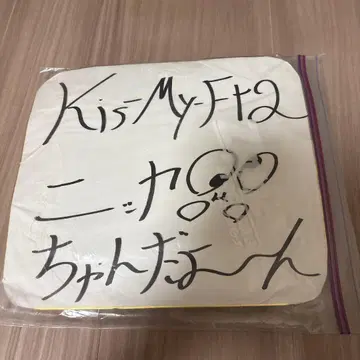 Kis-My-Ft2
ニッカ
ちゃんだよ〜ん